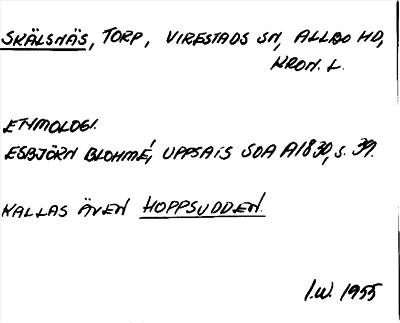 SKÄLSNÄS, TORP, VIRESTADS SN, ALLBO HD,
KRON. L.
ETYMOLOGI.
ESBJÖRN BLOHMÉ, UPPSAIS SOA A1830, S. 39.
KALLAS ÄVEN HOPPSUDDEN.
I.W. 1955